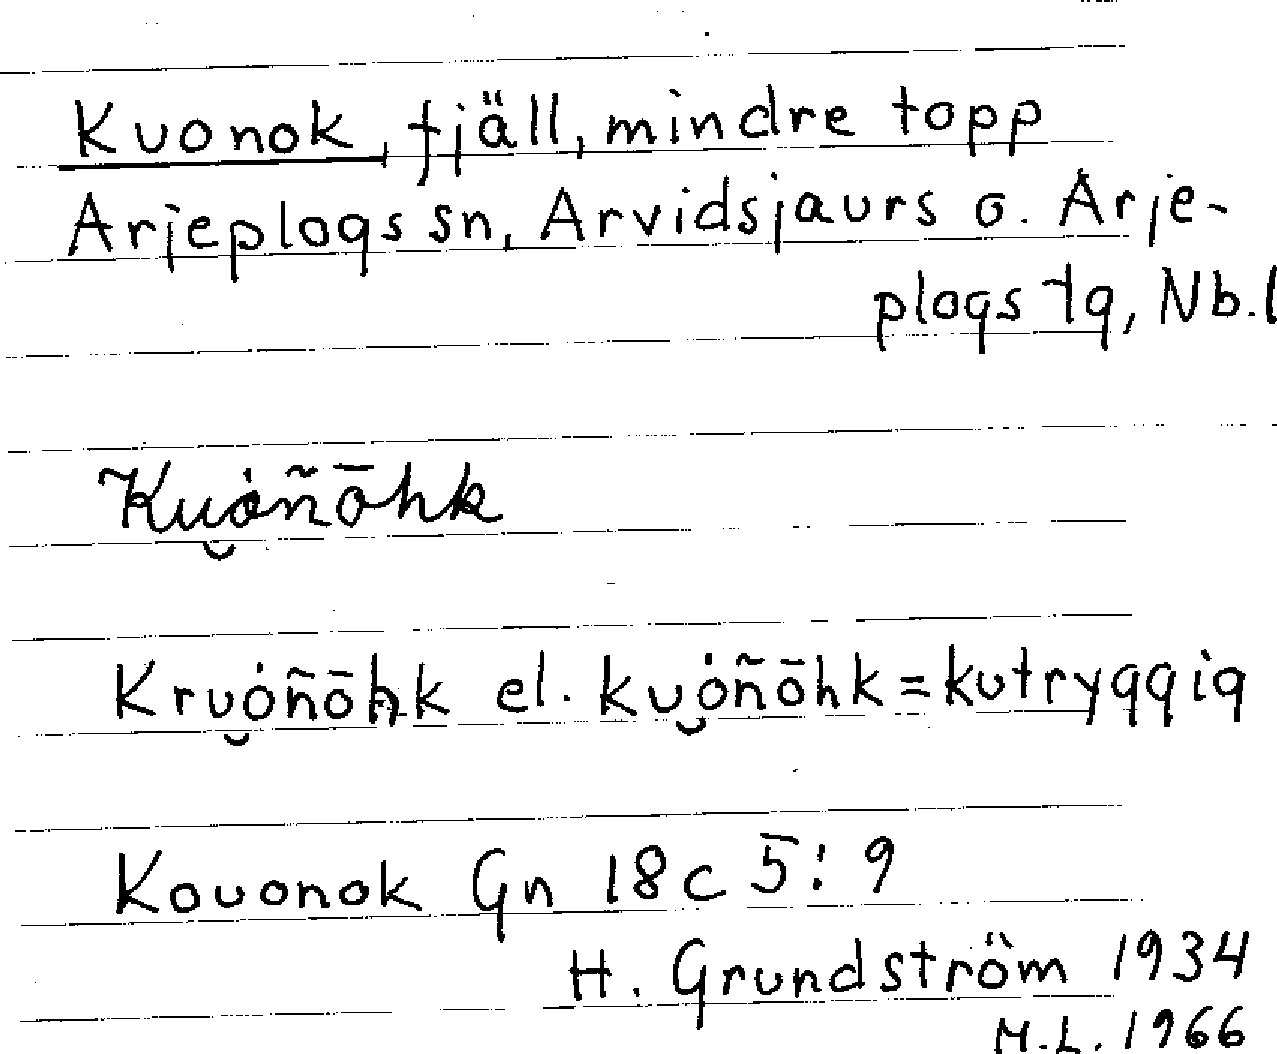 Kuonok, fjäll, mindre topp
Arjeplogs sn, Arvidsjaurs o. Arje-
plogs tg, Nb.l
Ku̮ȯñōhk
Kru̮ȯñōhk el. ku̮ȯñōhk = kutryggig
Kouonok Gn 18c 5:9
H. Grundström 1934
M.L. 1966